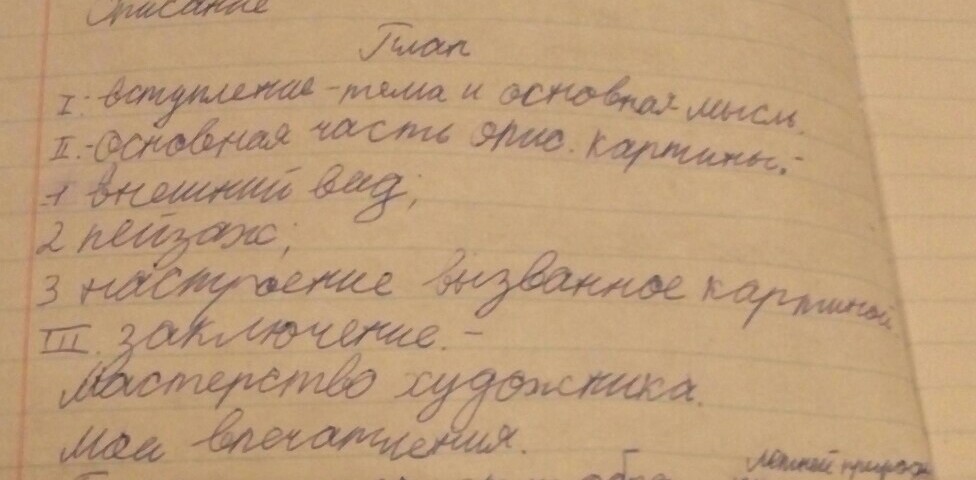 Описание
План
I. вступление - тема и основная мысль.
II. - Основная часть опис. картины: -
1 внешний вид;
2 пейзаж;
3 настроение вызванное картиной
III. заключение. -
Мастерство художника.
Мои впечатления.